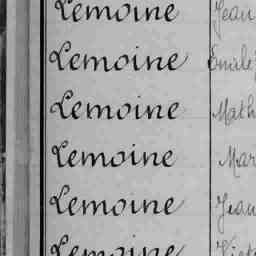 Lemoine Jean
Lemoine Emile
Lemoine Math
Lemoine Mar
Lemoine Jean
Lemoine Vict